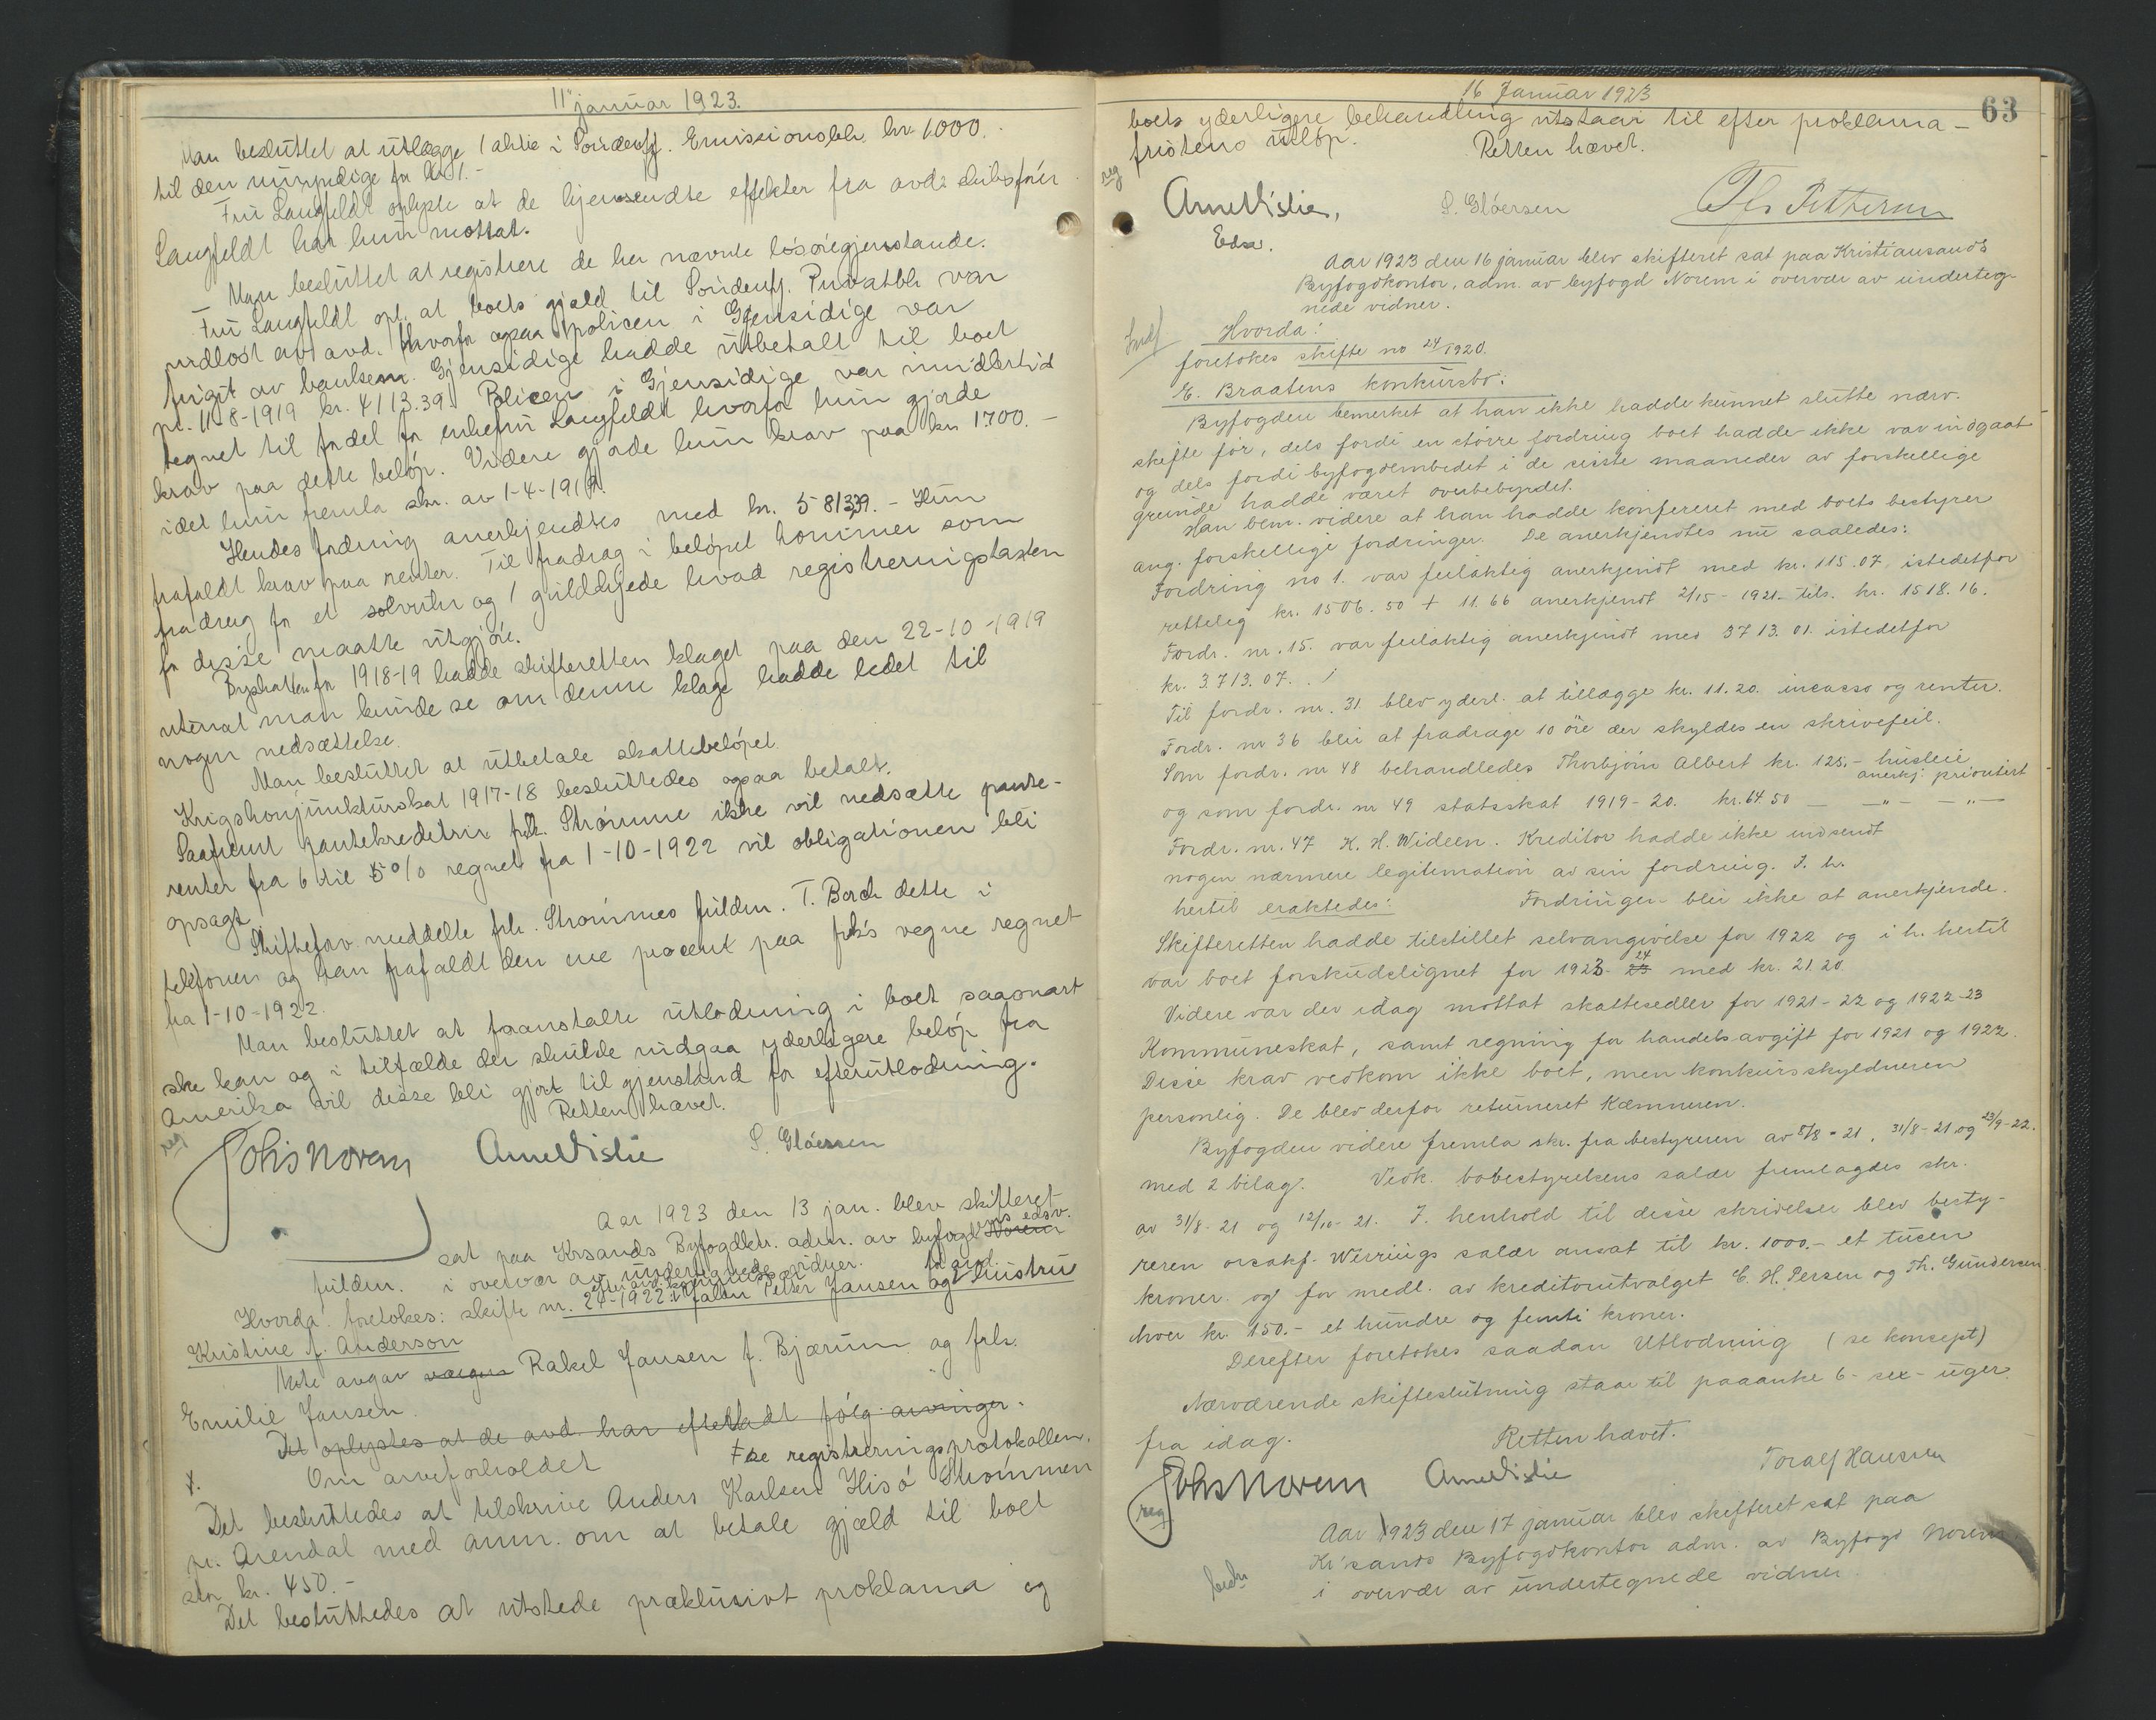 11 januar 1923.
Man besluttet at utlægge 1 aktie i Søndenfj. Emissionsbk. kr. 1000.-
til den umyndige for kr. 1.-
Fru Langfeldt oplyste at de hjemsendte effekter fra avd. skibsfører
Langfeldt har hun mottat.
Man besluttet at registrere de her nævnte løsøregjenstande.
Fru Langfeldt opl. at boets gjæld til Søndenfj. Privatbk. var
indløst av avd. hvorfor ogsaa policen i Gjensidige var
frigit av banken. Gjensidige hadde utbetalt til boet
pr. 11-8-1919 kr. 4113.39. Policen i Gjensidige var imidlertid
tegnet til fordel for enkefru Langfeldt hvorfor hun gjorde
krav paa dette beløp. Videre gjorde hun krav paa kr. 1700.-
idet hun fremla skr. av 1-4-191
Hendes fordring anerkjendtes med kr. 5813.39. - Hun
frafaldt krav paa renter. Til fradrag i beløpet kommer som
fradrag for et sølvur og 1 guldkjede hvad registreringstaksten
for disse maatte utgjøre.
Byskatten for 1918-19 hadde skifteretten klaget paa den 22-10-1919
uten at man kunde se om denne klage hadde ledet til
nogen nedsættelse.
Man besluttet at utbetale skattebeløpet.
Krigskonjunkturskat 1917-18 besluttedes ogsaa betalt.
Saafremt pantekreditrix frk. Strømme ikke vil nedsætte pante-
renter fra 6 til 5% regnet fra 1-10-1922 vil obligationen bli
opsagt.
Skifteforv. meddelte frk. Strømmes fuldm. T. Borch dette i
telefonen og han frafaldt den ene procent paa frk's vegne regnet
fra 1-10-1922.
Man besluttet at foranstalte utlodning i boet saasnart
ske kan og i tilfælde der skulde indgaa yderligere beløp fra
Amerika vil disse bli gjort til gjenstand for efterutlodning.
Retten hævet.
reg
Johs Norem Arne Vislie S. Gløersen
Aar 1923 den 13 jan. blev skifteret
sat paa Krsands Byfogdktr. adm. av byfogd Norems edsv.
fuldm. i overvær av undertegnede vidner.
Hvorda foretokes: skifte nr. 24-1922 i Peter Jansen og hustru
Kristine f. Anderson
Møte avgav værgen Rakel Jansen f. Bjærum og frk.
Emilie Jansen.
Det oplystes at de avd. har efterladt følg. arvinger.
Om arveforholdet se registreringsprotokollen.
Det besluttedes at tilskrive Anders Karlsen Hisø Strømmen
pr. Arendal med anm. om at betale gjæld til boet
stor kr. 450.-
Det besluttedes at utstede præklusivt proklama og
16 Januar 1923
63
boets yderligere behandling utstaar til efter proklama-
fristens utløp. Retten hævet.
reg
Arne Vislie, S. Gløersen Pettersen
Edsv.
Aar 1923 den 16 januar blev skifteret sat paa Kristiansands
Byfogdkontor, adm. av byfogd Norem i overvær av underteg-
nede vidner.
Hvorda:
foretokes skifte no 24/1920.
E. Braatens konkursbo:
Byfogden bemerket at han ikke hadde kunnet slutte nærv.
skifte før, dels fordi en større fordring boet hadde ikke var indgaat
og dels fordi byfogdembedet i de siste maaneder av forskellige
grunde hadde været overbebyrdet.
Han bem. videre at han hadde konfereret med boets bestyrer
ang. forskellige fordringer. De anerkjendtes nu saaledes:
Fordring no 1. var feilaktig anerkjendt med kr. 115.07. istedetfor
rettelig kr. 1506.50 + 11.66 anerkjendt 2/15-1921. tils. kr. 1518.16.
Fordr. nr. 15. var feilaktig anerkjendt med 3713.01. istedetfor
kr. 3713.07.
Til fordr. nr. 31 blev yderl. at tillægge kr. 11.20. incasso og renter.
Fordr. nr 36 blir at fradrage 10 øre der skyldes en skrivefeil.
Som fordr. nr 48 behandledes Thorbjørn Albert kr. 125.- husleie
anerkj. prioritert
og som fordr. nr 49 statsskat 1919-20. kr. 64.50 — —"— —"—
Fordr. nr. 47 K. H. Wideen. Kreditor hadde ikke indsendt
nogen nærmere legitimation av sin fordring. I h.
hertil eraktedes: Fordringen blir ikke at anerkjende.
Skifteretten hadde tilstillet selvangivelse for 1922 og i h. hertil
var boet forskudslignet for 1923-24 med kr. 21.20.
Videre var der idag mottat skattesedler for 1921-22 og 1922-23
Kommuneskat, samt regning for handelsavgift for 1921 og 1922.
Disse krav vedkom ikke boet, men konkursskyldneren
personlig. De blev derfor returneret Kæmneren.
Byfogden videre fremla skr. fra bestyreren av 5/8-21, 31/8-21 og 23/9-22.
med 2 bilag. Vedk. bobestyrelsens salær fremlagdes skr.
av 31/8-21 og 12/10-21. I henhold til disse skrivelser blev besty-
reren orsakf. Wirrings salær ansat til kr. 1000.- et tusen
kroner og for medl. av kreditorutvalget C. H. Persen og Th. Gundersen
hver kr. 150.- et hundre og femti kroner.
Derefter foretokes saadan Utlodning (se koncept)
Nærværende skifteslutning staar til paaanke 6-sex-uger.
fra idag.
Retten hævet.
reg
Johs Norem Arne Vislie Toralf Hansen
Aar 1923 den 17 januar blev skifteret sat paa
Kr'sands Byfogdkontor adm. av Byfogd Norem
i overvær av undertegnede vidner.